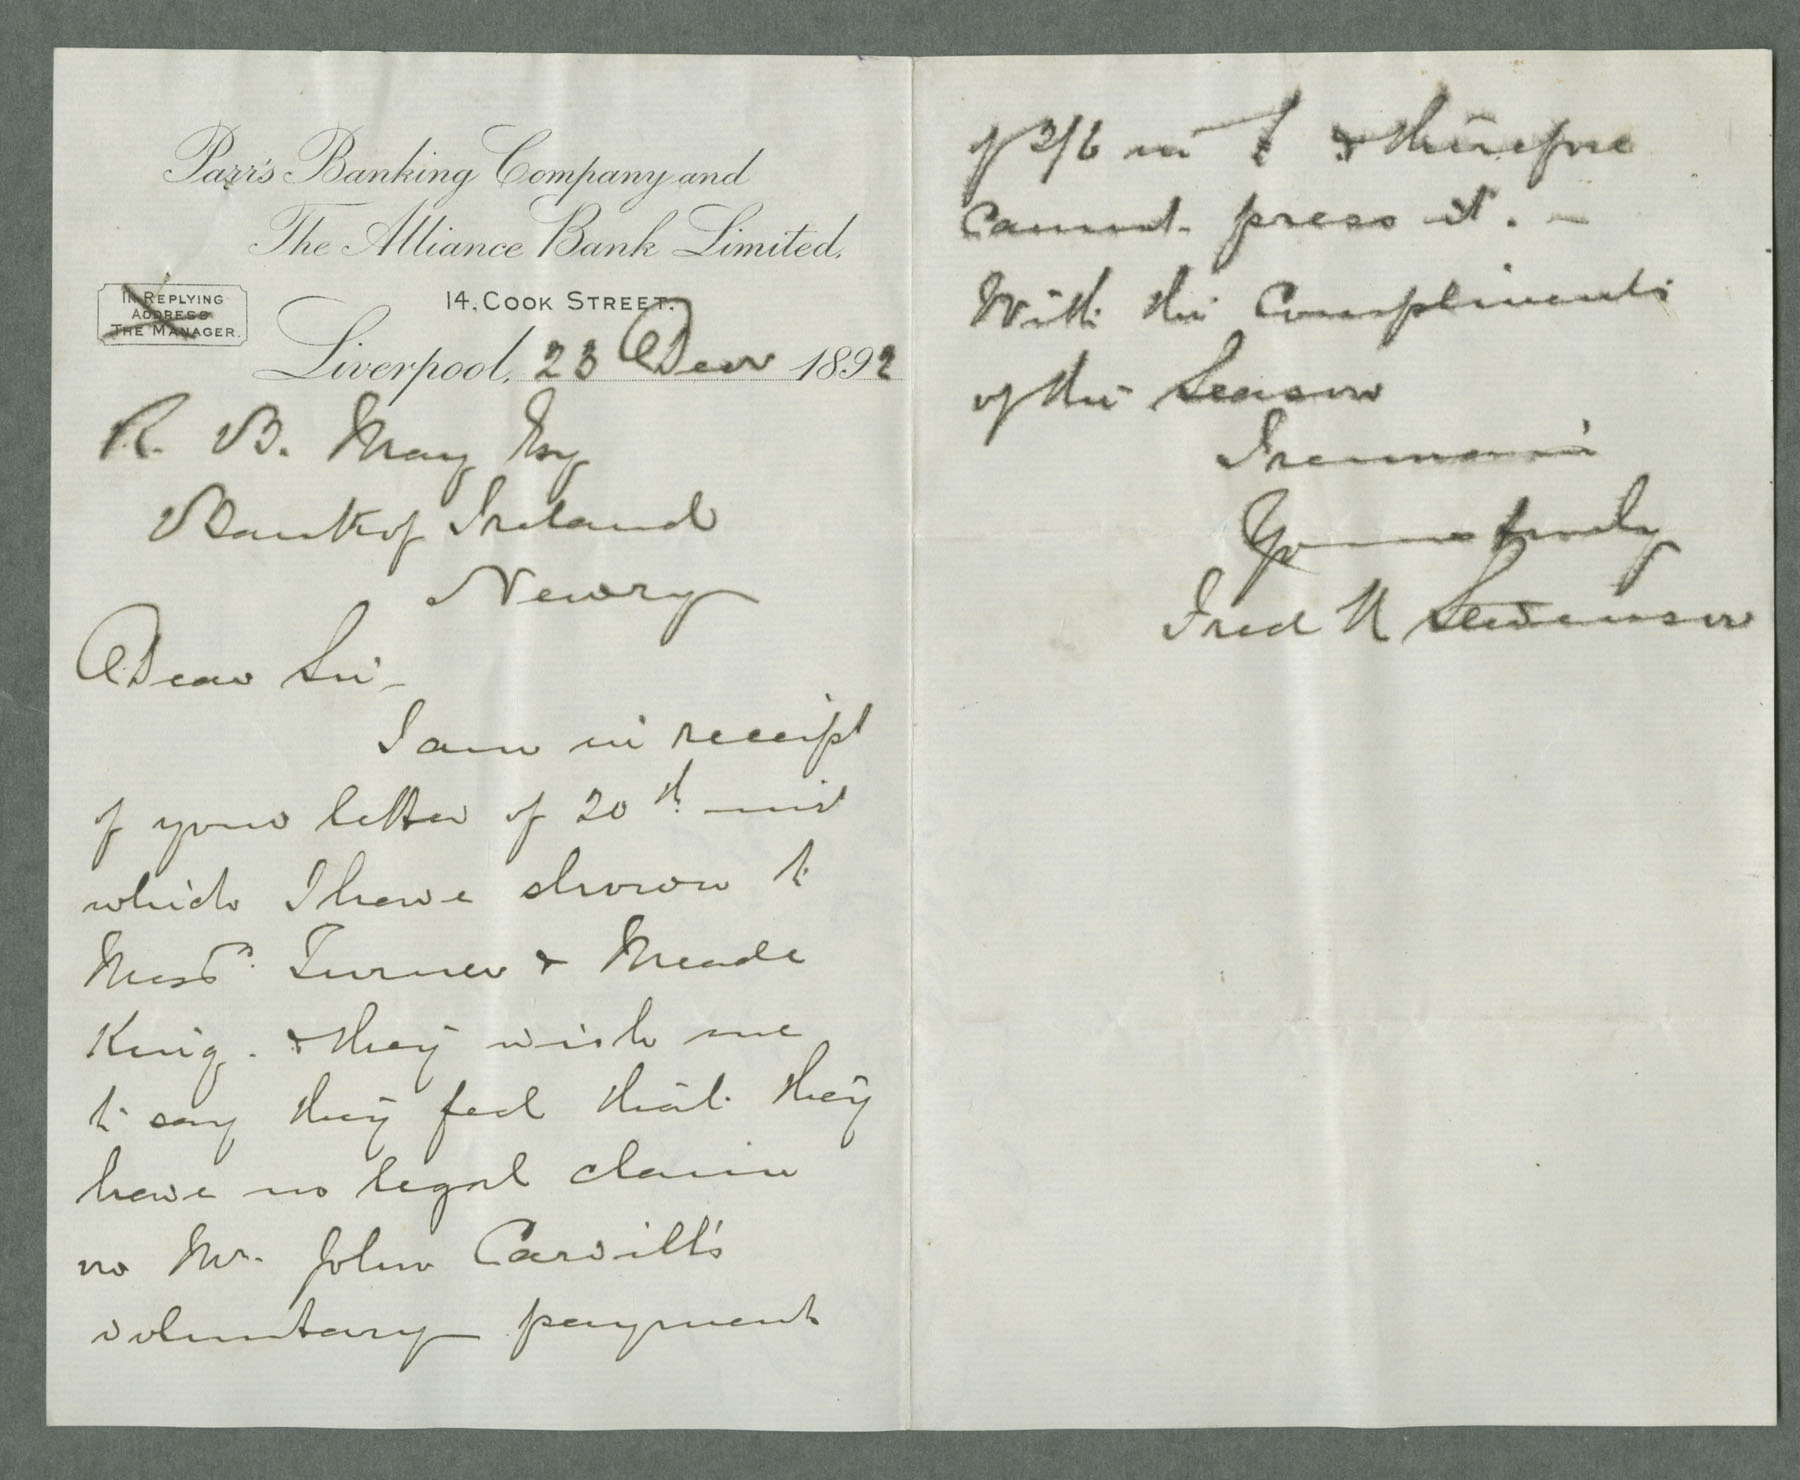 Parr's Banking Company and
The Alliance Bank Limited.
IN REPLYING
ADDRESS
THE MANAGER.
14, COOK STREET.
Liverpool, 23 Decr 1892
R. B. May Esq
Bank of Ireland
Newry
Dear Sir
I am in receipt
of your letter of 20th inst
which I have shown to
Messrs. Turner & Meade
King. & they wish me
to say they feel that they
have no legal claim
on Mr. John Carvill's
voluntary payment
of 2/6 in £ & therefore
cannot press it. -
With the Compliments
of the Season
I remain
Yours truly
Fred Stevenson